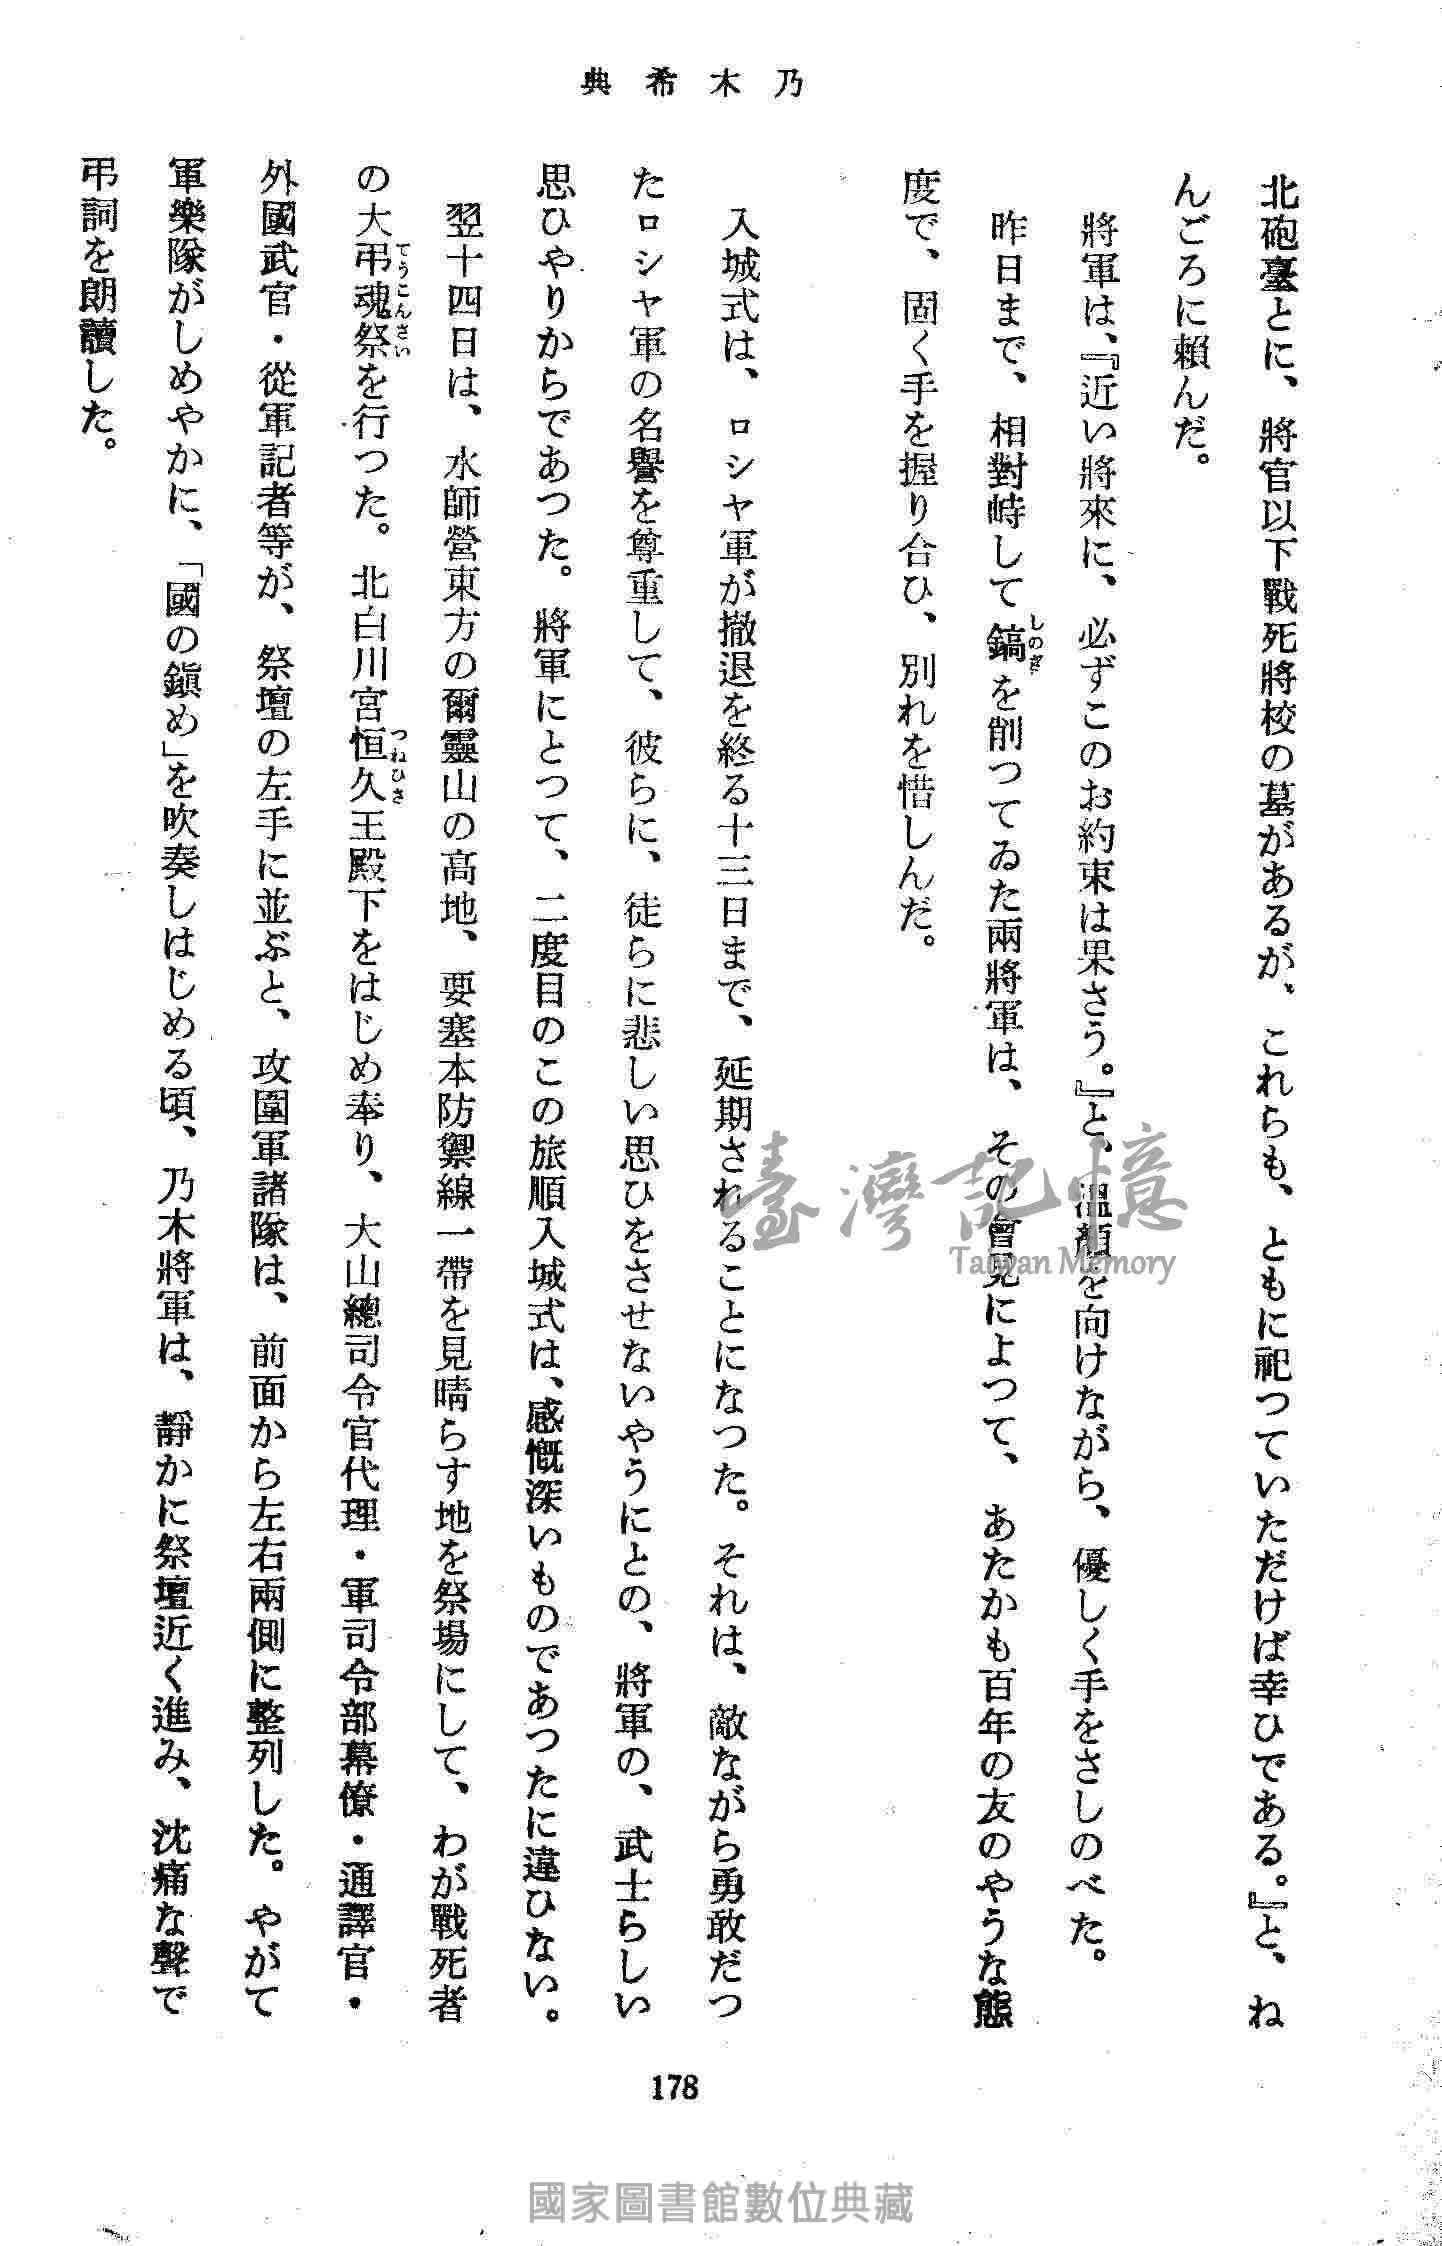 乃木希典
北砲臺とに、將官以下戰死將校の墓があるが、これらも、ともに祀つていただけば幸ひである。』と、ね
んごろに賴んだ。
將軍は、『近い將來に、必ずこのお約束は果さう。』と、溫顏を向けながら、優しく手をさしのべた。
昨日まで、相對峙して鎬を削つてゐた兩將軍は、その會見によつて、あたかも百年の友のやうな態
しのぎ
度で、固く手を握り合ひ、別れを惜しんだ。
入城式は、ロシヤ軍が撤退を終る十三日まで、延期されることになつた。それは、敵ながら勇敢だつ
たロシヤ軍の名譽を尊重して、彼らに、徒らに悲しい思ひをさせないやうにとの、將軍の、武士らしい
思ひやりからであつた。將軍にとつて、二度目のこの旅順入城式は、感慨深いものであつたに違ひない。
翌十四日は、水師營東方の爾靈山の高地、要塞本防禦線一帶を見晴らす地を祭場にして、わが戰死者
の大弔魂祭を行つた。北白川宮恒久王殿下をはじめ奉り、大山總司令官代理・軍司令部幕僚・通譯官・
てうこんさい
つねひさ
外國武官・從軍記者等が、祭壇の左手に並ぶと、攻圍軍諸隊は、前面から左右兩側に整列した。やがて
軍樂隊がしめやかに、「國の鎭め」を吹奏しはじめる頃、乃木將軍は、靜かに祭壇近く進み、沈痛な聲で
弔詞を朗讀した。
178
臺灣記憶
Taiwan Memory
國家圖書館數位典藏